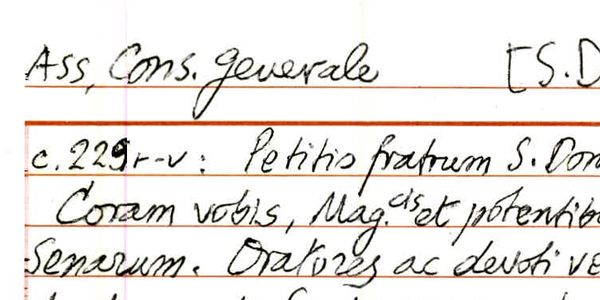 Ass, Cons. generale [S.D
c. 229r-v: Petitio fratrum S. Dom
Coram vobis, Mag.cis et potentib
Senarum. Oratores ac devoti ve